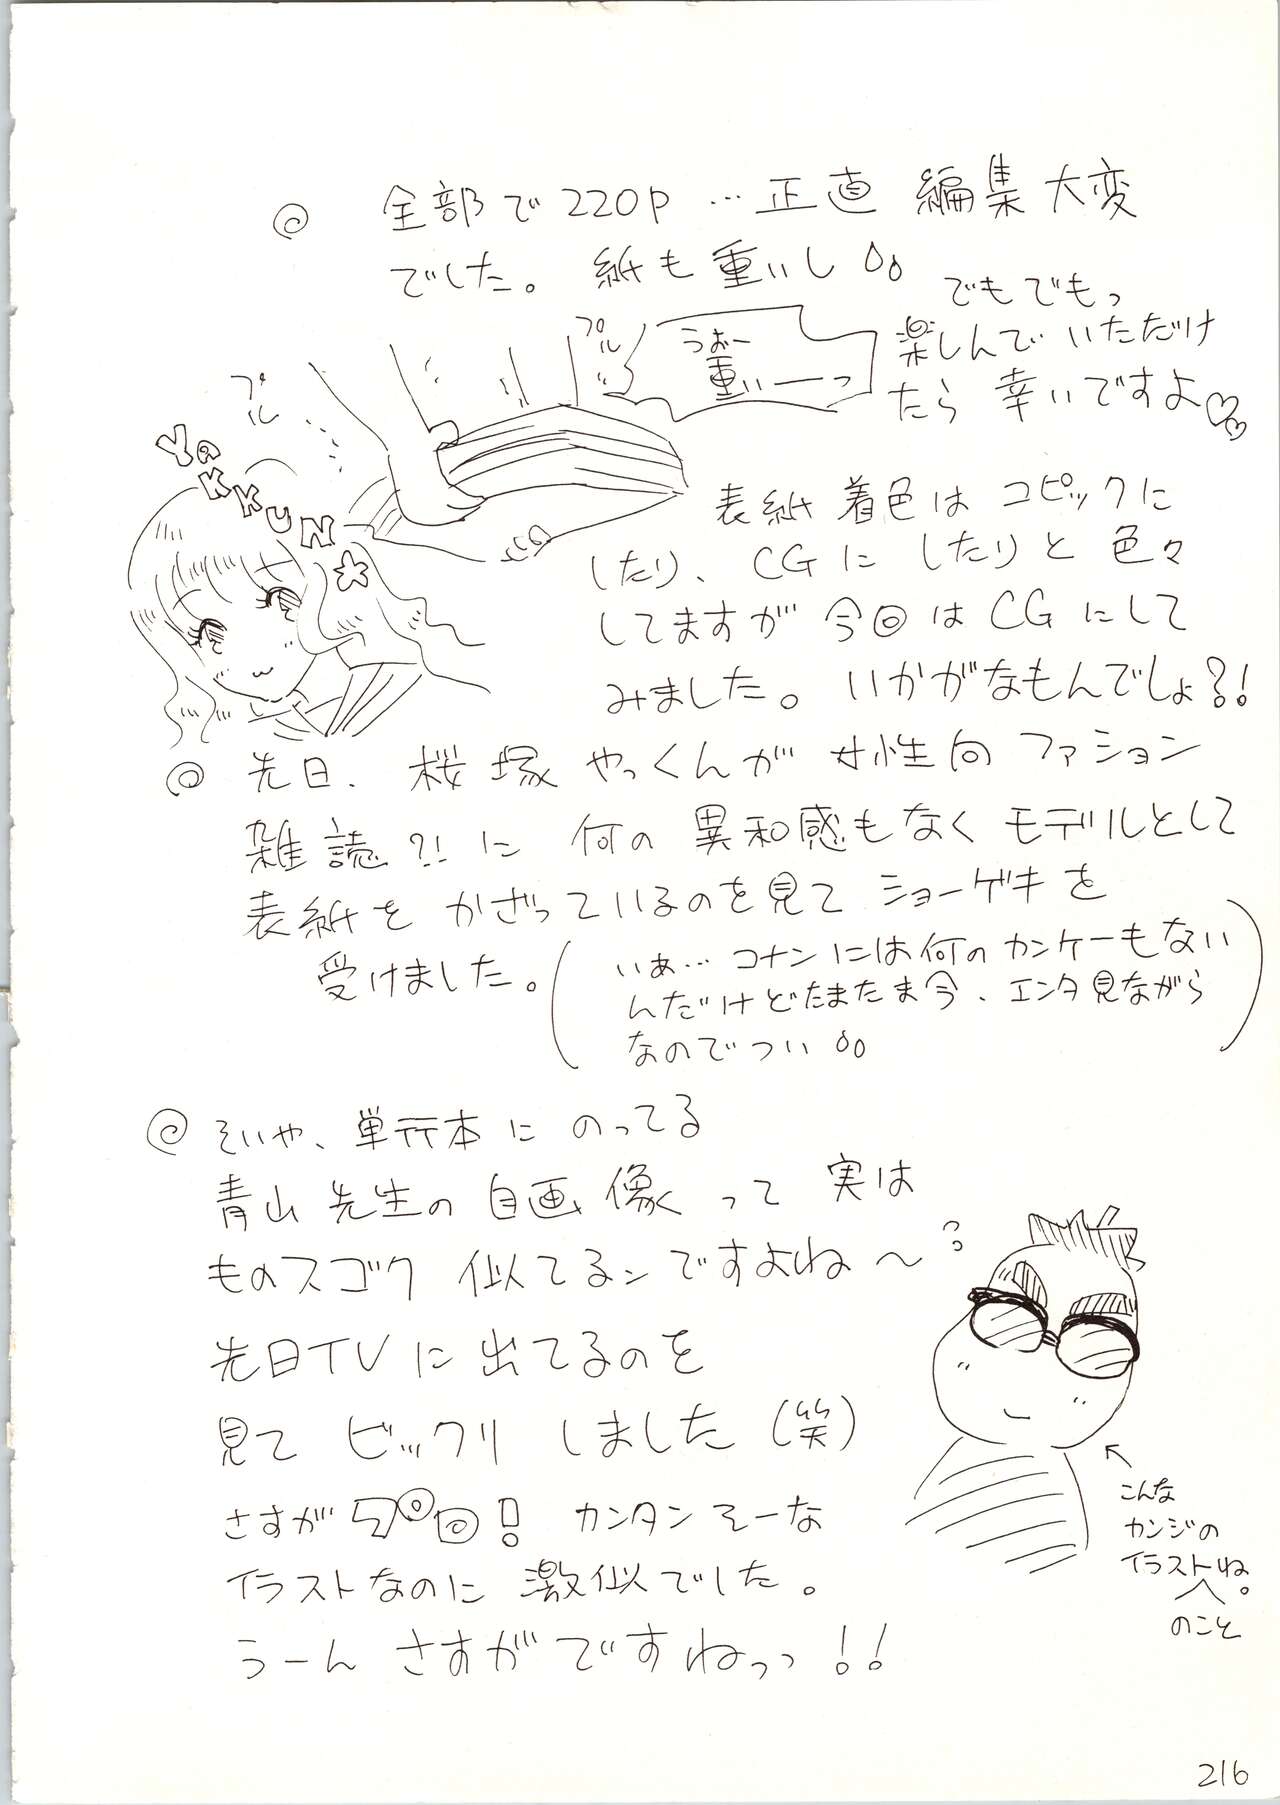 ◎ 全部で220P…正直 編集大変
でした。紙も重いし
でもでもっ
楽しんでいただけ
たら 幸いですよ♡♡
うおー
重いーっ
プル
プル
YAKKUN☆
表紙着色はコピックに
したり、CGにしたりと色々
してますが今回はCGにして
みました。いかがなもんでしょ?!
◎ 先日、桜塚やっくんが女性向ファション
雑誌?!に何の異和感もなくモデルとして
表紙をかざっているのを見てショーゲキを
受けました。
(いあ…コナンには何のカンケーもない
んだけどたまたま今、エンタ見ながら
なのでつい)
◎ そいや、単行本にのってる
青山先生の自画像って実は
ものスゴク似てるンですよね〜
先日TVに出てるのを
見てビックリしました(笑)
さすがプロ! カンタンそーな
イラストなのに激似でした。
うーんさすがですねっっ!!
こんな
カンジの
イラストね。
のこと
216